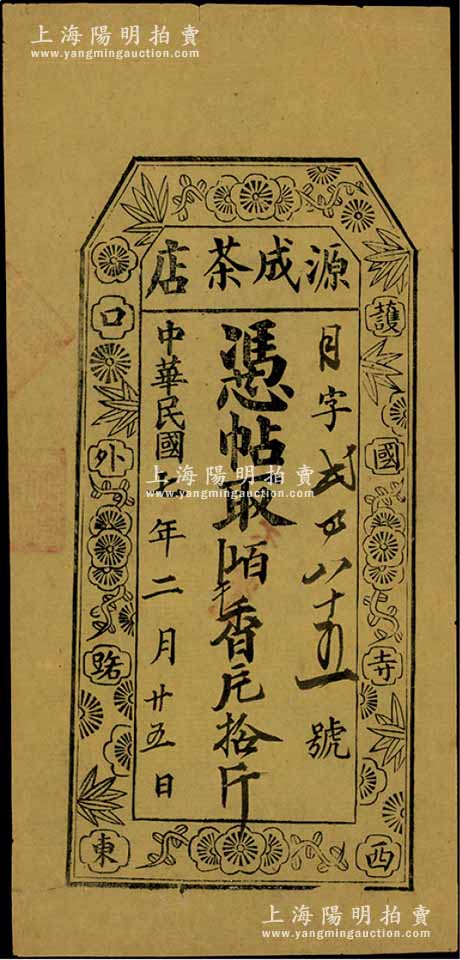 上海陽明拍賣
www.yangmingauction.com
源成茶店
月字弍四八十五號
憑帖取
香片拾斤
中華民國
年二月廿五日
護國寺西
口外路東
上海陽明拍賣
www.yangmingauction.com
上海陽明拍賣
www.yangmingauction.com